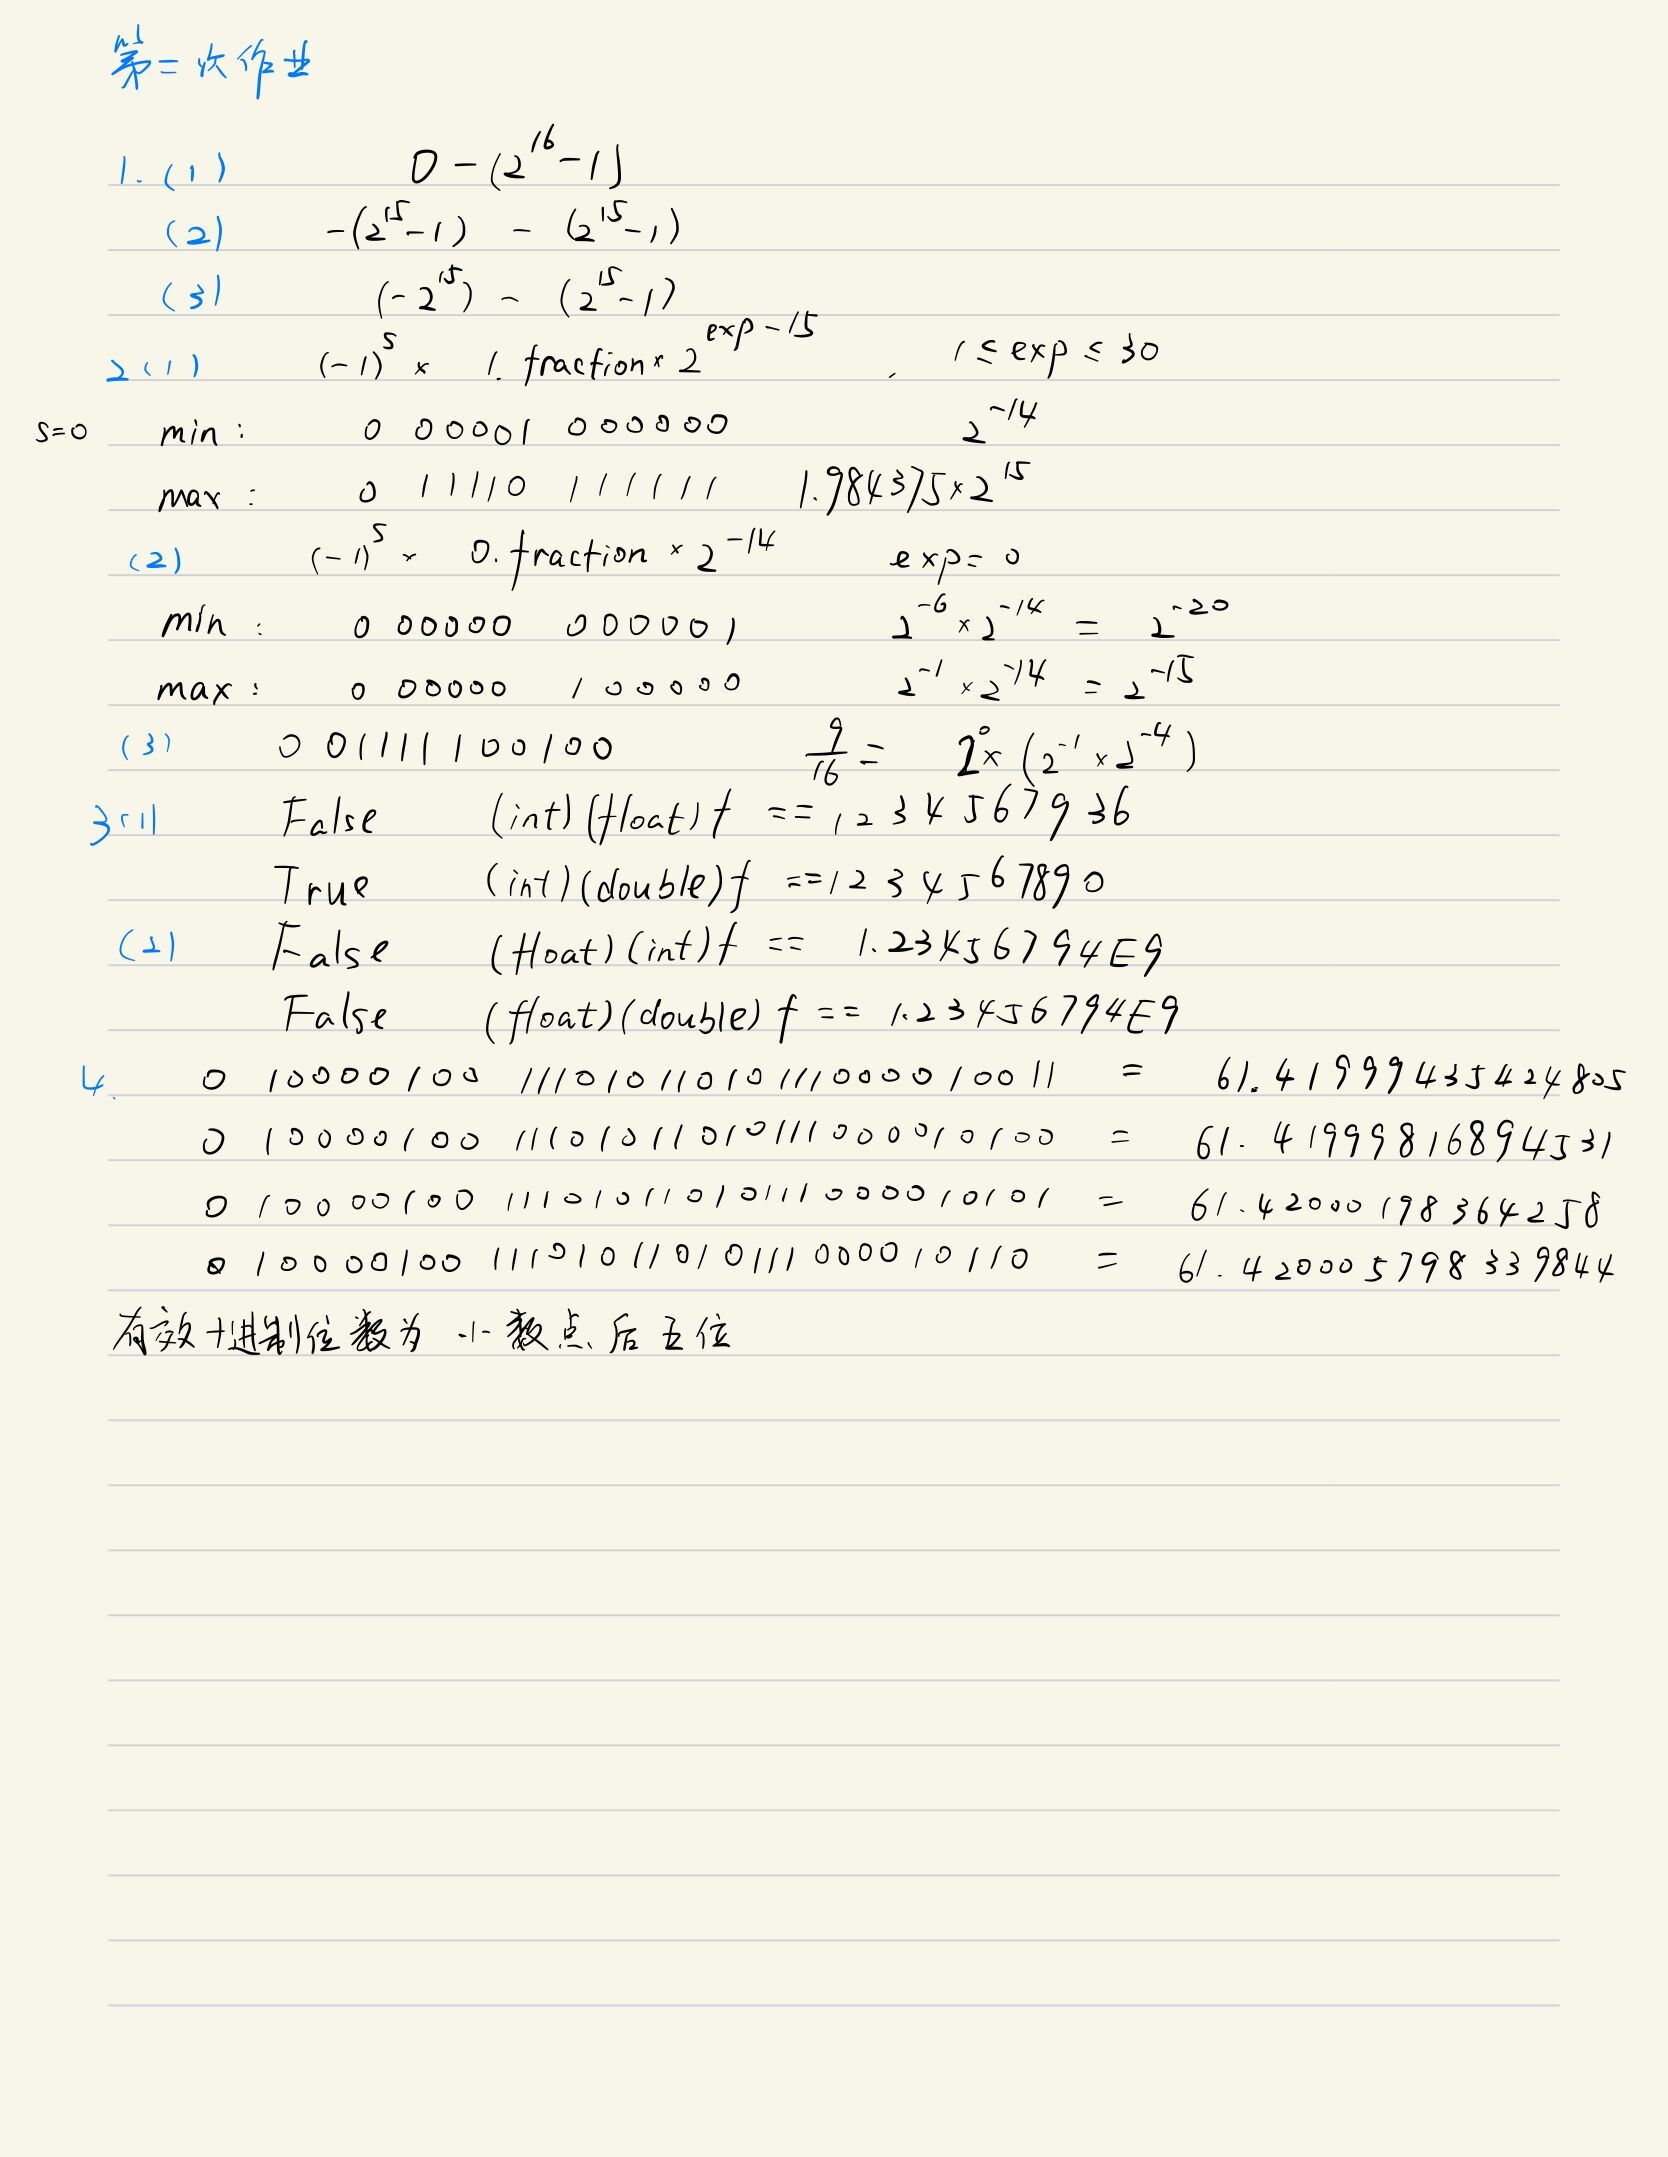 第二次作业
1. (1) 0 - (2^16 - 1)
(2) -(2^15 - 1) - (2^15 - 1)
(3) (-2^15) - (2^15 - 1)
2 (1) (-1)^s × 1. fraction × 2^exp-15 , 1 ≤ exp ≤ 30
s=0 min : 0 00001 000000 2^-14
max : 0 11110 111111 1.984375 × 2^15
(2) (-1)^s × 0. fraction × 2^-14 exp = 0
min : 0 00000 000001 2^-6 × 2^-14 = 2^-20
max : 0 00000 100000 2^-1 × 2^-14 = 2^-15
(3) 0 01111 100100 9/16 = 2^0 × (2^-1 × 2^-4)
3 (1) False (int)(float)f == 1234567936
True (int)(double)f == 1234567890
(2) False (float)(int)f == 1.23456794E9
False (float)(double)f == 1.234567 94E9
4. 0 10000100 11101011010111000010011 = 61.41999435424805
0 10000100 11101011010111000010100 = 61.41999816894531
0 10000100 11101011010111000010101 = 61.42000198364258
0 10000100 11101011010111000010110 = 61.420005798339844
有效十进制位数为 小数点后五位